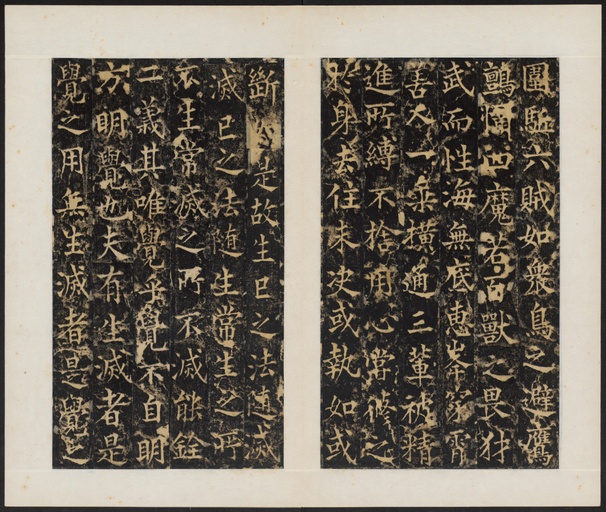 團驅六賊如衆鳥之避鷹
鸇 四魔若百獸之畏犲
武而性海無底惠峯 霄
善入一乘橫通三輩被精
進所縛不捨用心 修之
於身去住未决或執如或
斷 是故生已之法隨滅
滅已之法随生常生之所
不生常滅之所不滅能銓
二義其唯覺乎覺不自明
方明覺也夫有生滅者是
覺之用無生滅者是覺之